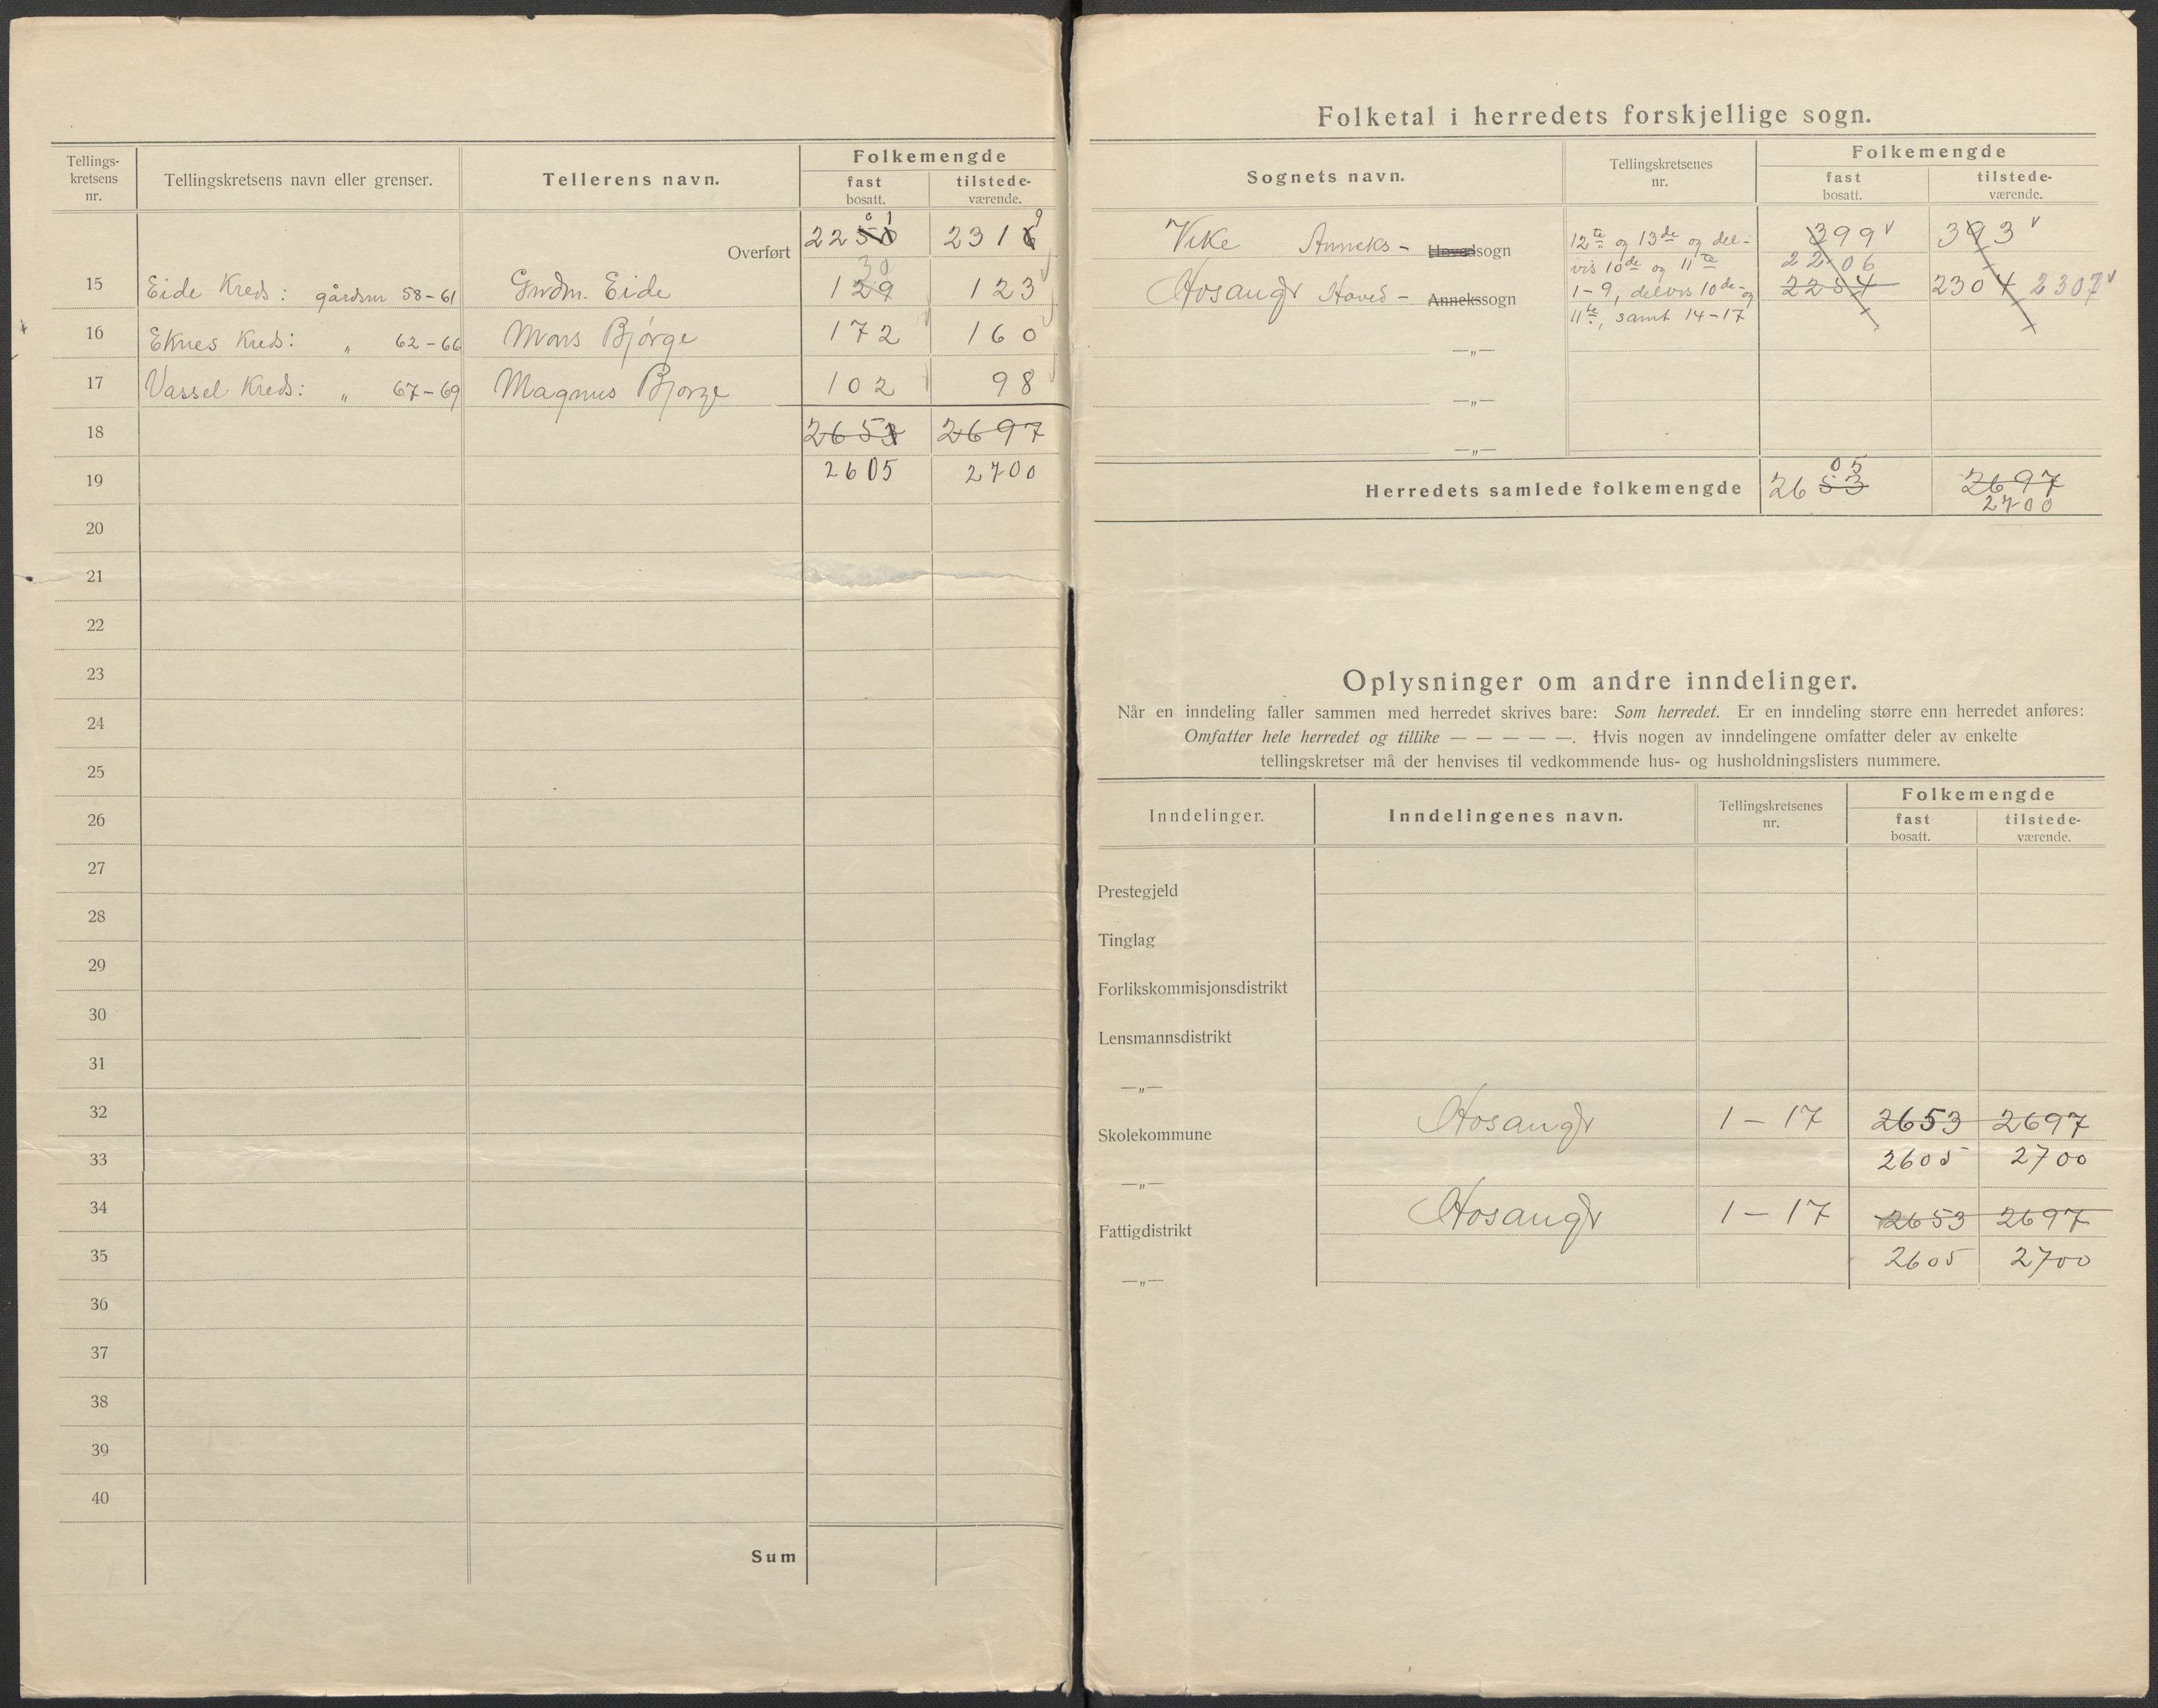 Tellings-
kretsens
nr.
Tellingskretsens navn eller grenser.
Tellerens navn.
Folkemengde
fast
bosatt.
tilstede-
værende.
Overført 2250 0 1 2316 9
15 Eide Kreds: gårdsnr 58-61 Gudm. Eide 129 30 123
16 Eknes Kreds: „ 62-66 Mons Bjørge 172 160
17 Vassel Kreds: „ 67-69 Magnus Bjorge 102 98
18 2653 2697
19 2605 2700
20
21
22
23
24
25
26
27
28
29
30
31
32
33
34
35
36
37
38
39
40
Sum
Folketal i herredets forskjellige sogn.
Sognets navn.
Tellingskretsenes
nr.
Folkemengde
fast
bosatt.
tilstede-
værende.
Vike Anneks- Hovedsogn 12te og 13de og del- 399 393
vis 10de og 11te 2206
Hosangr Hoved- Annekssogn 1-9, delvis 10de- og 2254 2304 2307
11te, samt 14-17
—„—
—„—
—„—
05
Herredets samlede folkemengde 2653 2697
2700
Oplysninger om andre inndelinger.
Når en inndeling faller sammen med herredet skrives bare: Som herredet. Er en inndeling større enn herredet anføres:
Omfatter hele herredet og tillike — — — — —. Hvis nogen av inndelingene omfatter deler av enkelte
tellingskretser må der henvises til vedkommende hus- og husholdningslisters nummere.
Inndelinger.
Inndelingenes navn.
Tellingskretsenes
nr.
Folkemengde
fast
bosatt.
tilstede-
værende.
Prestegjeld
Tinglag
Forlikskommisjonsdistrikt
Lensmannsdistrikt
—„—
Skolekommune Hosangr 1-17 2653 2697
—„— 2605 2700
Fattigdistrikt Hosangr 1-17 2653 2697
—„— 2605 2700